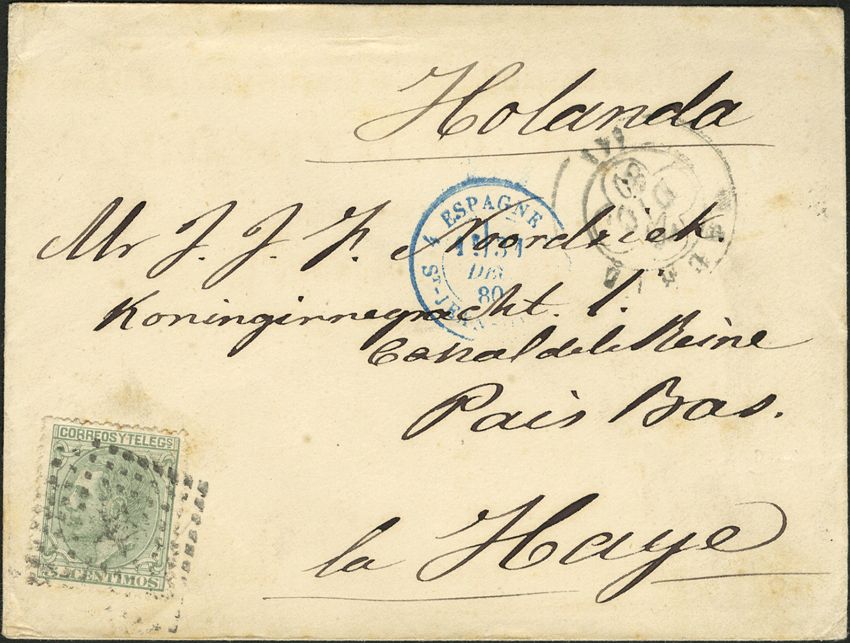 Holanda
Mr J. J. F. Noordziek.
Koninginnegracht. 1.
Canal de la Reine
Pais Bas.
la Haye
4 ESPAGNE
31
DEC
80
ST-JEAN
CORREOS Y TELEGS
5 CENTIMOS